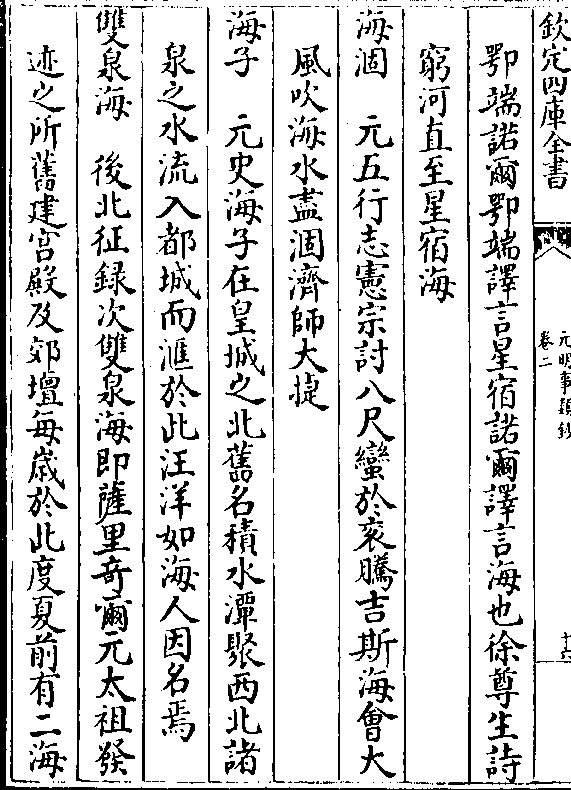 欽定四庫全書
元明事類鈔
卷二
十六
鄂端諾爾鄂端譯言星宿諾爾譯言海也徐尊生詩
窮河直至星宿海
海涸　元五行志憲宗討八尺蠻於裒騰吉斯海會大
風吹海水盡涸濟師大捷
海子　元史海子在皇城之北舊名積水潭聚西北諸
泉之水流入都城而滙於此汪洋如海人因名焉
雙泉海　後北征録次雙泉海即薩里奇爾元太祖發
迹之所舊建宮殿及郊壇每歲於此度夏前有二海